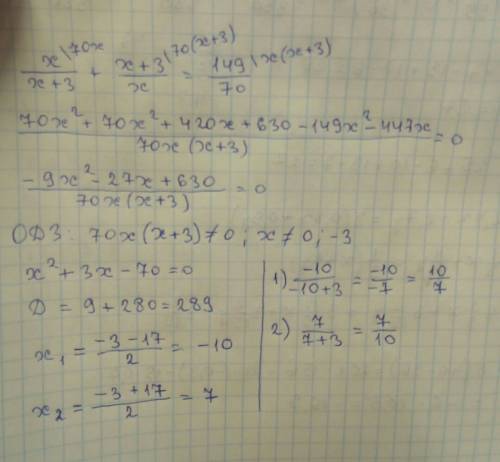 x\70x/(x+3) + (x+3)\70(x+3)/x = 149\x(x+3)/70
(70x² + 70x² + 420x + 630 - 149x² - 447x)/(70x(x+3)) = 0
(-9x² - 27x + 630)/(70x(x+3)) = 0
ОДЗ: 70x(x+3) ≠ 0; x ≠ 0; -3
x² + 3x - 70 = 0
D = 9 + 280 = 289
x₁ = (-3 - 17)/2 = -10
x₂ = (-3 + 17)/2 = 7
1) -10/(-10+3) = -10/-7 = 10/7
2) 7/(7+3) = 7/10